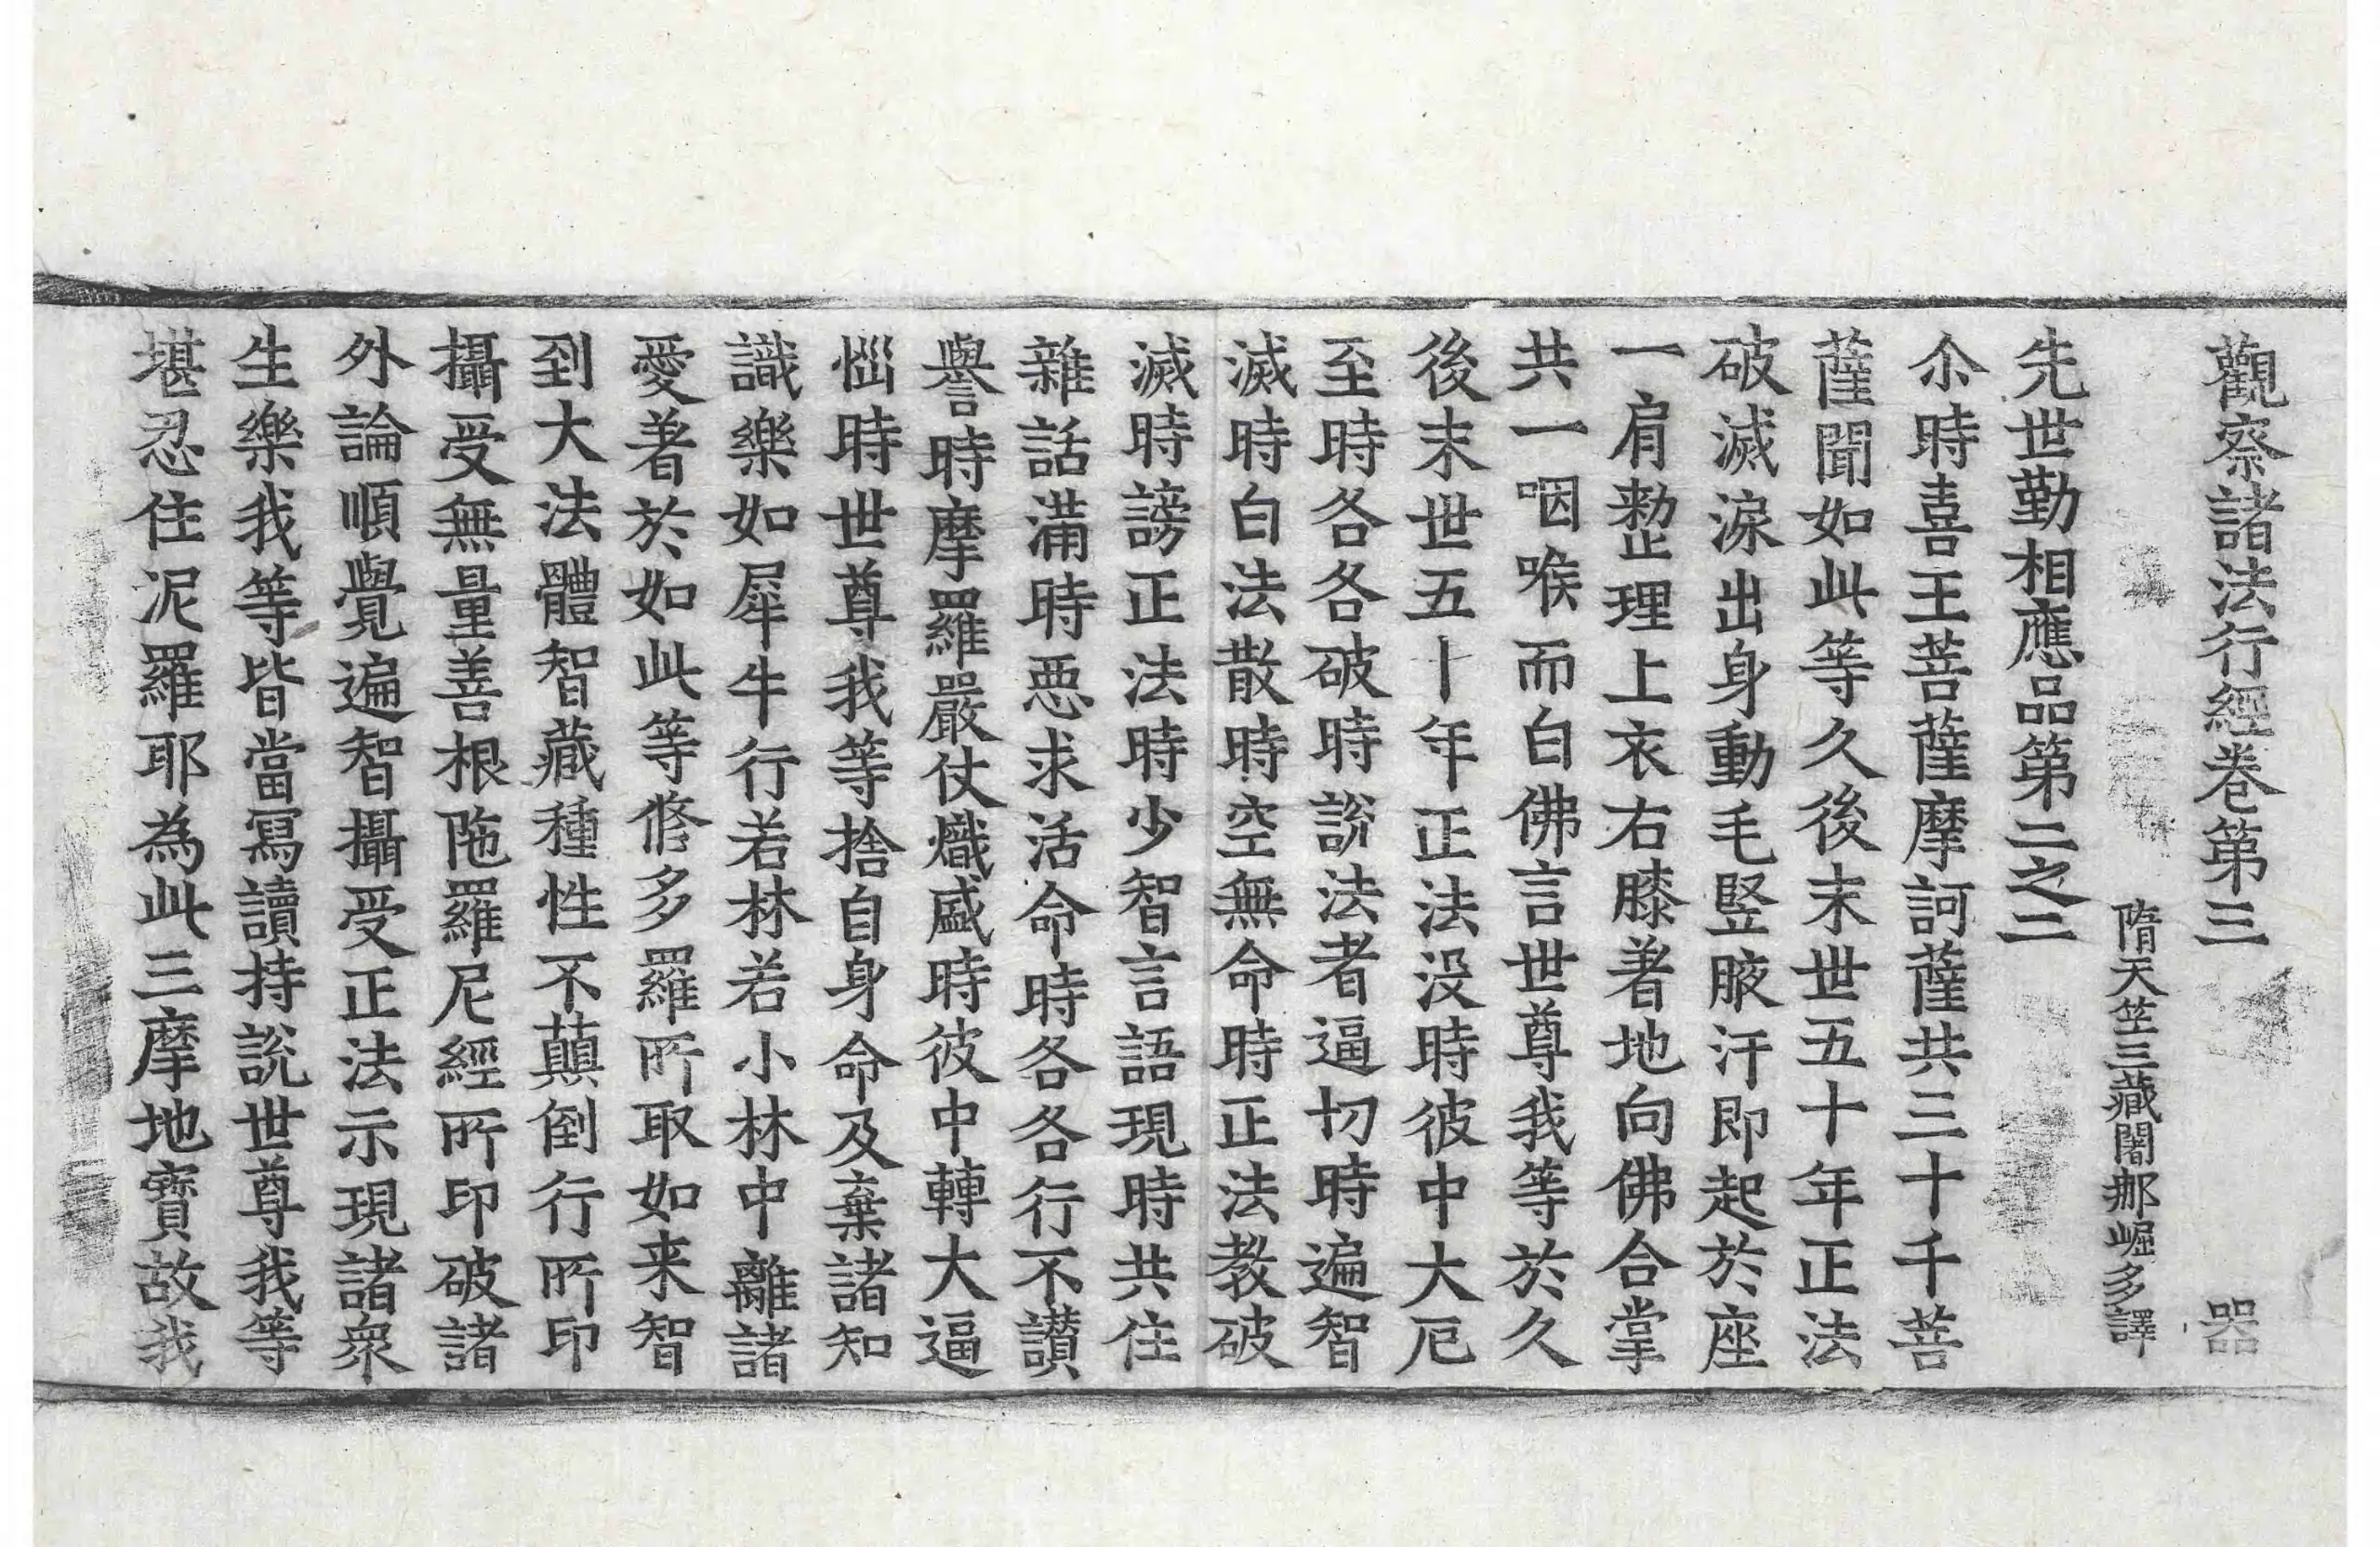 觀察諸法行經卷第三 器
隋天竺三藏闍那崛多譯
先世勤相應品第二之二
尒時喜王菩薩摩訶薩共三十千菩
薩聞如此等久後末世五十年正法
破滅淚出身動毛竪腋汗即起於座
一肩整理上衣右膝著地向佛合掌
共一咽喉而白佛言世尊我等於久
後末世五十年正法没時彼中大厄
至時各各破時說法者逼切時遍智
滅時白法散時空無命時正法教破
滅時謗正法時少智言語現時共住
雜話滿時惡求活命時各各行不讃
譽時摩羅嚴仗熾盛時彼中轉大逼
惱時世尊我等捨自身命及棄諸知
識樂如犀牛行若林若小林中離諸
愛著於如此等修多羅所取如来智
到大法體智藏種性不蘬倒行所印
攝受無量善根陁羅尼經所印破諸
外論順覺遍智攝受正法示現諸衆
生樂我等皆當寫讀持說世尊我等
堪忍住泥羅耶為此三摩地寶故我